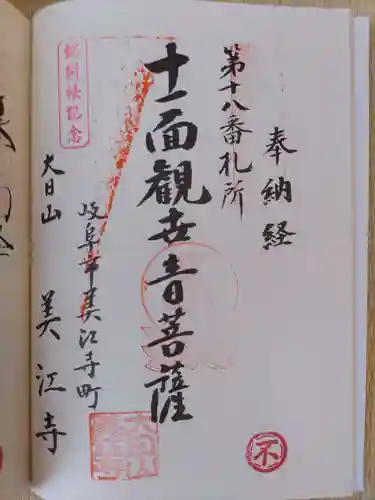 奉納経
第十八番札所
十一面観世音菩薩
岐阜市美江寺町
大日山 美江寺
御開帳記念
不